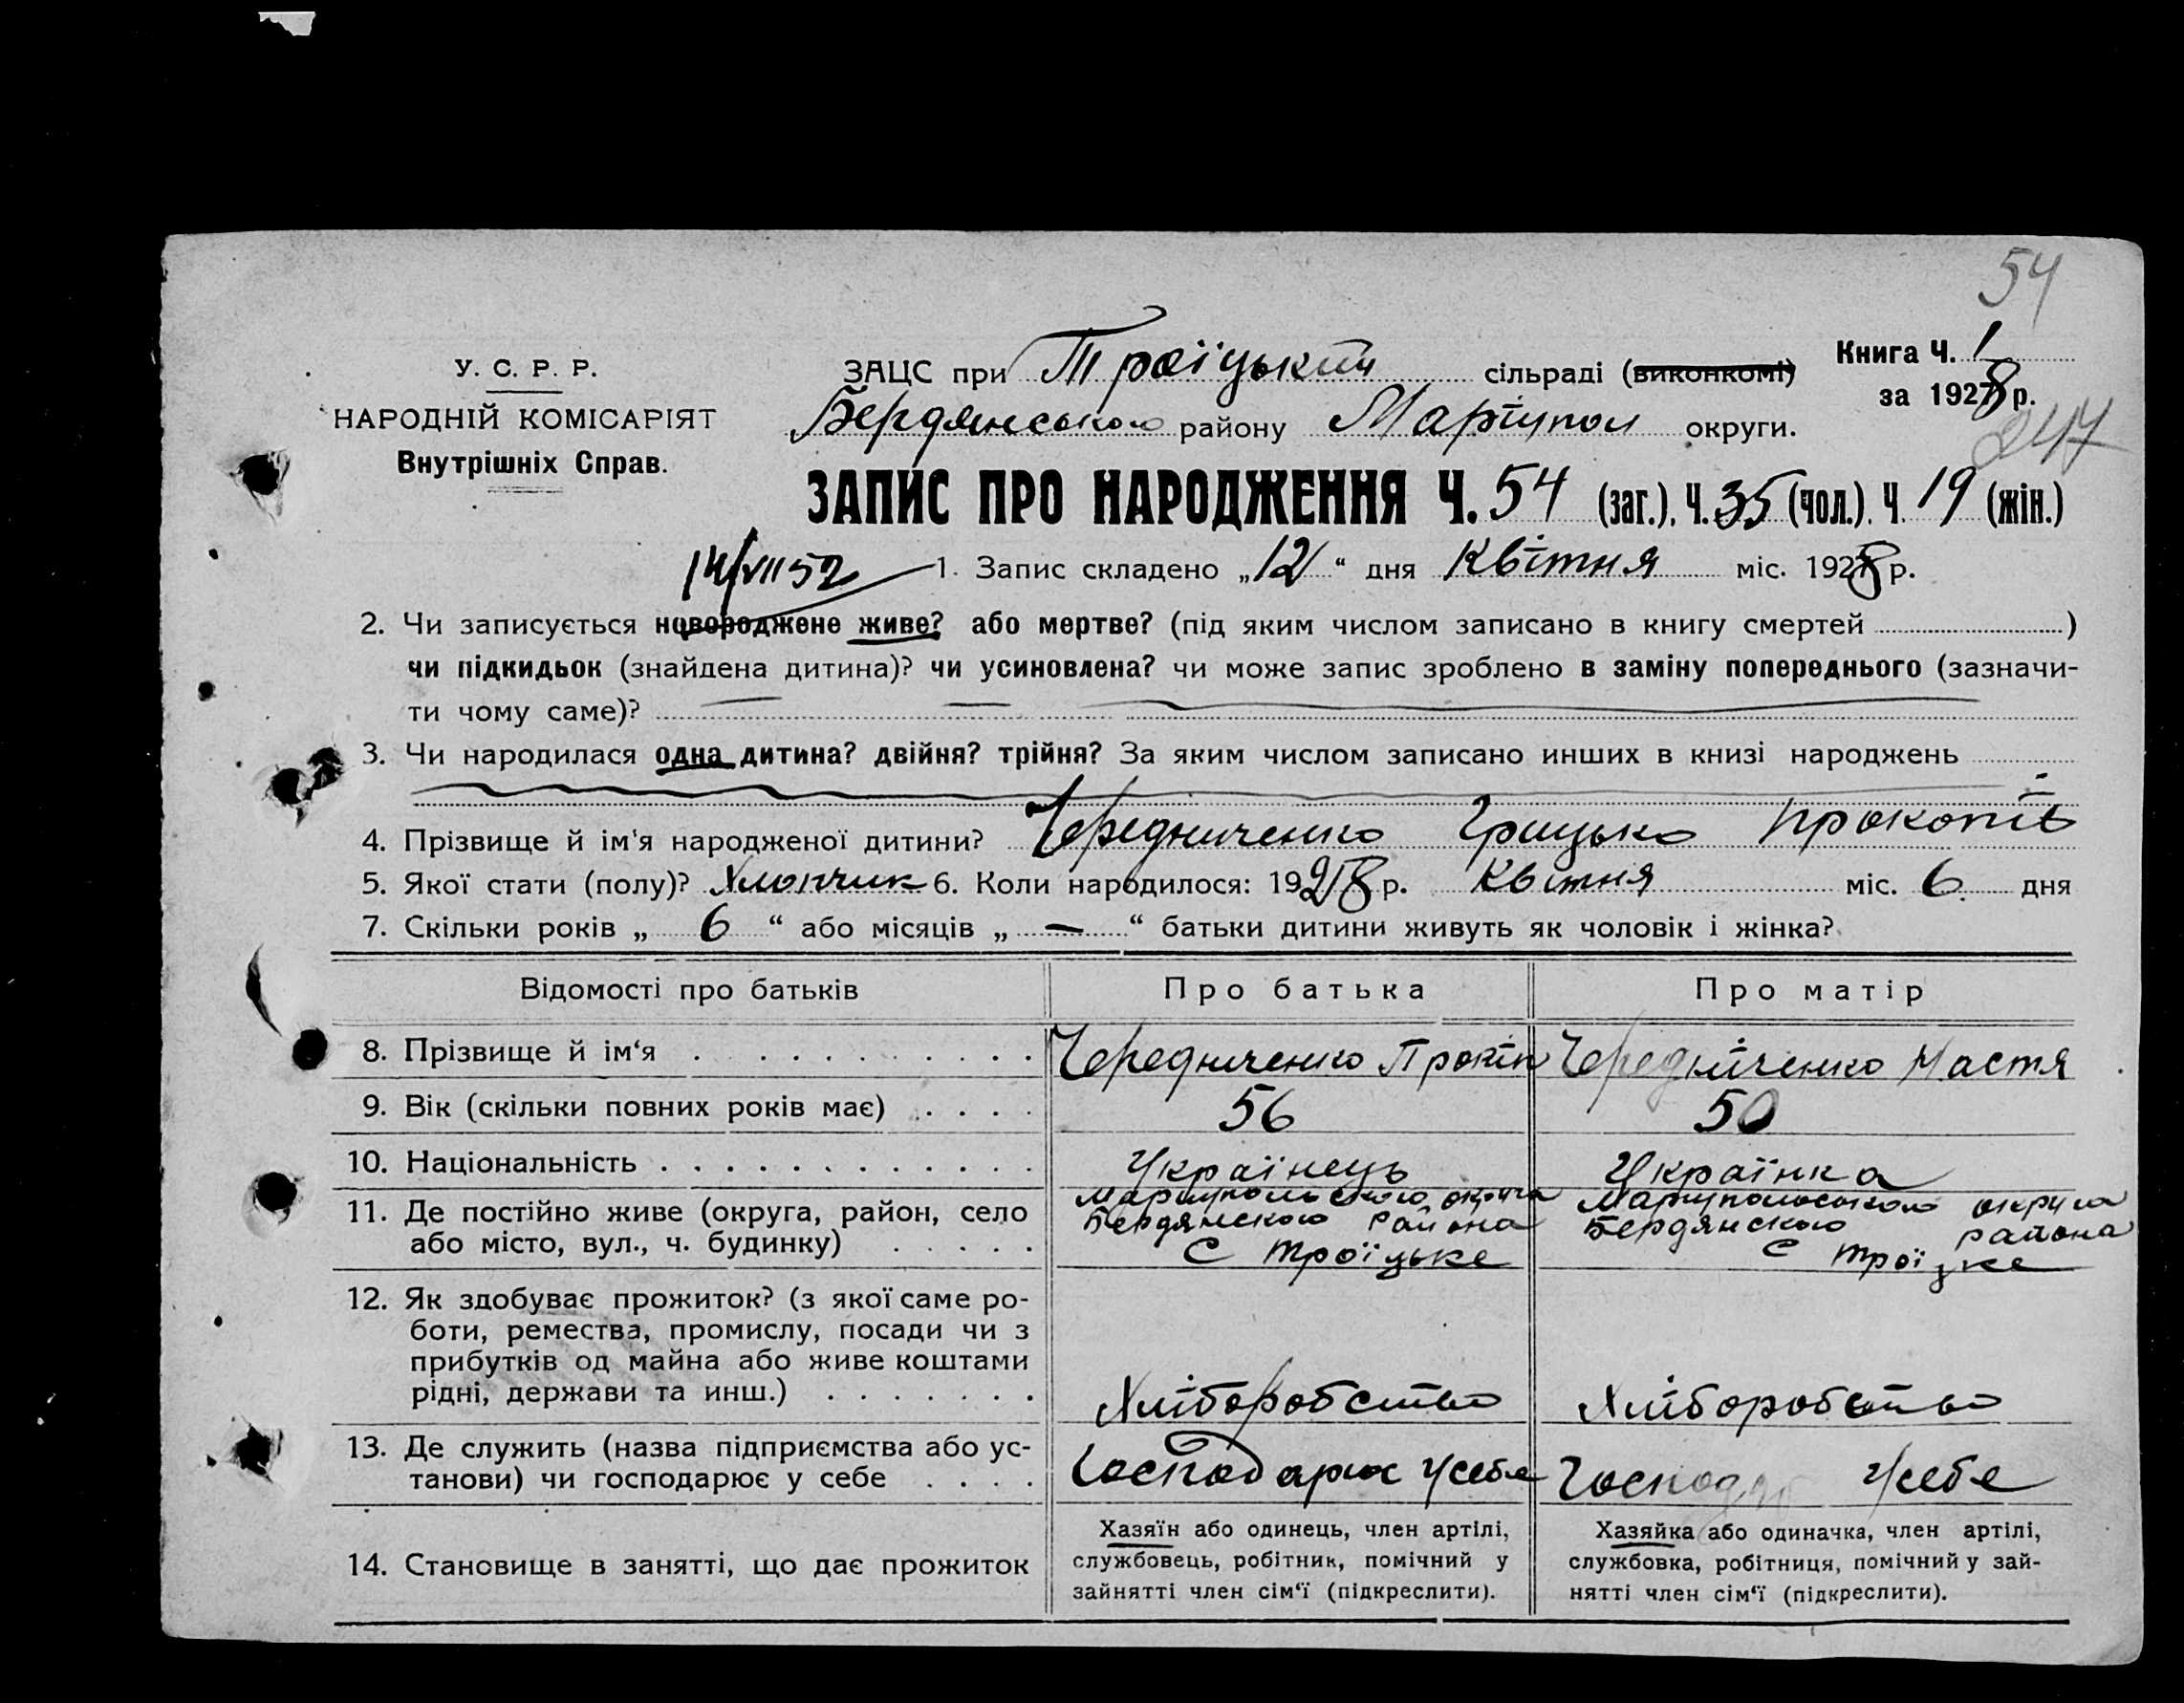 54
У. С. Р. Р.
НАРОДНІЙ КОМІСАРІЯТ
Внутрішніх Справ.
ЗАЦС при Троіцькій сільраді (виконкомі)
Книга Ч. 1
за 1928 р.
Бердянського району Маріупол округи.
247
ЗАПИС ПРО НАРОДЖЕННЯ Ч. 54 (заг.), Ч. 35 (чол.). Ч. 19 (жін.)
14/VII 52
1. Запис складено „12“ дня Квітня міс. 1928 р.
2. Чи записується новороджене живе? або мертве? (під яким числом записано в книгу смертей )
чи підкидьок (знайдена дитина)? чи усиновлена? чи може запис зроблено в заміну попереднього (зазначи-
ти чому саме)?
3. Чи народилася одна дитина? двійня? трійня? За яким числом записано инших в книзі народжень
4. Прізвище й ім'я народженої дитини? Чередниченко Грицько Прокопів
5. Якої стати (полу)? Хлопчик 6. Коли народилося: 1928 р. Квітня міс. 6 дня
7. Скільки років „ 6 “ або місяців „ — “ батьки дитини живуть як чоловік і жінка?
Відомості про батьків
Про батька
Про матір
8. Прізвище й ім‘я
Чередниченко Прокіп
Чередниченко Настя
9. Вік (скільки повних років має)
56
50
10. Національність
Українець
Українка
11. Де постійно живе (округа, район, село
або місто, вул., ч. будинку)
Мариупольского округа
Бердянского района
С Троїцьке
Мариупольоського округа
Бердянского района
С Троїцке
12. Як здобуває прожиток? (з якої саме ро-
боти, ремества, промислу, посади чи з
прибутків од майна або живе коштами
рідні, держави та инш.)
Хліборобство
Хліборобство
13. Де служить (назва підприємства або ус-
танови) чи господарює у себе
Господарює усебе
Господар усебе
14. Становище в занятті, що дає прожиток
Хазяїн або одинець, член артілі,
службовець, робітник, помічний у
зайнятті член сім‘ї (підкреслити).
Хазяйка або одиначка, член артілі,
службовка, робітниця, помічний у зай-
нятті член сім‘ї (підкреслити).